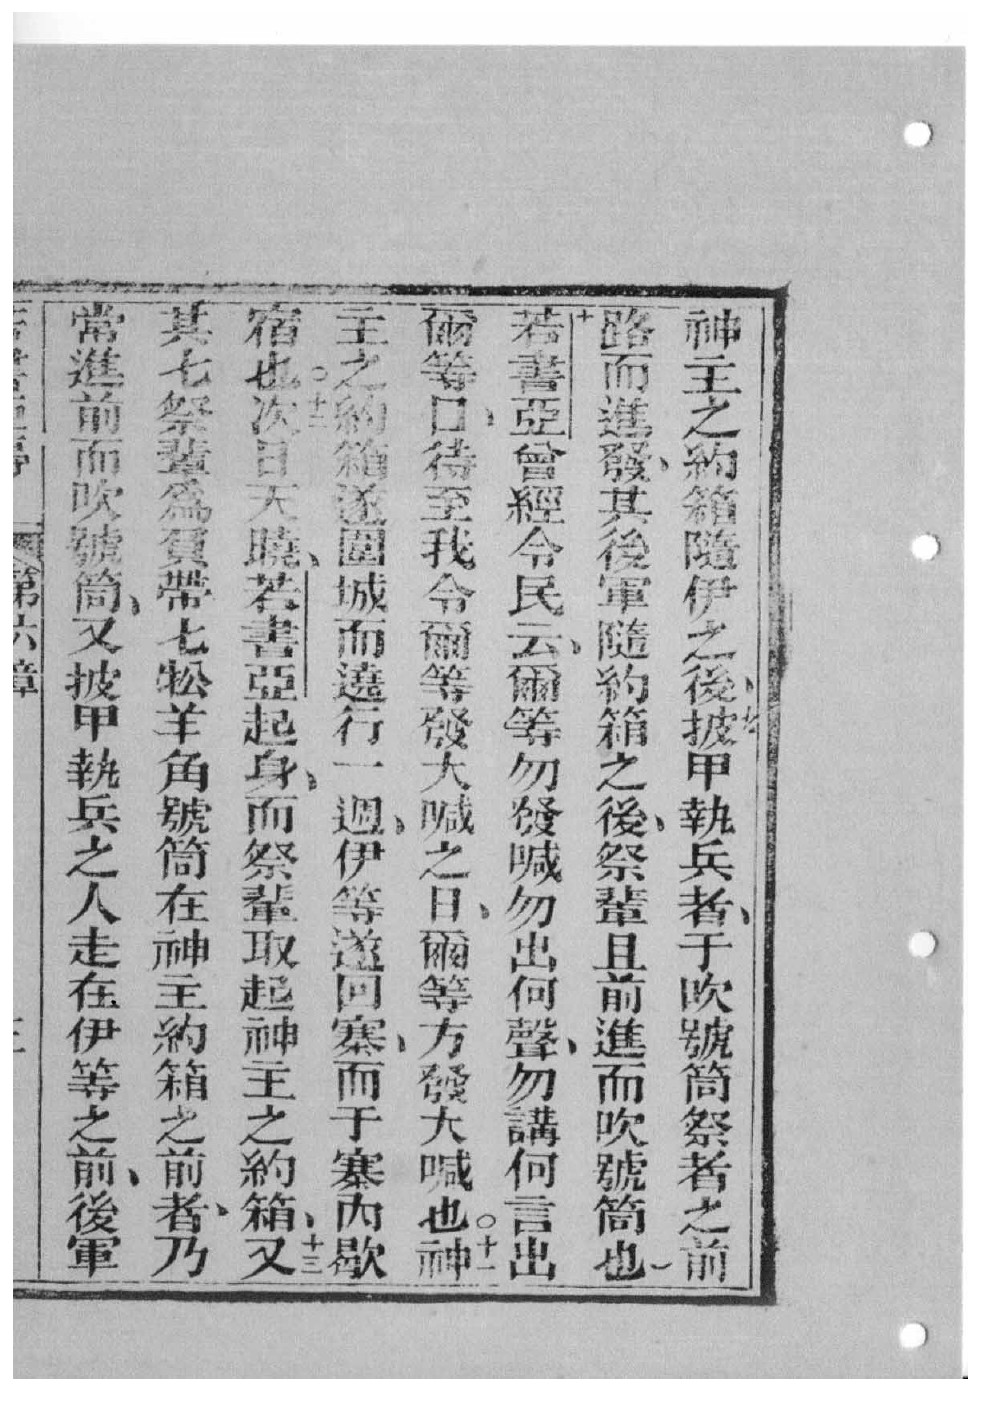 神主之約箱隨伊之後、九披甲執兵者、于吹號筒祭者之前
路而進發、其後軍隨約箱之後、祭輩且前進而吹號筒也
十若書亞曾經令民云、爾等勿發喊勿出何聲、勿講何言出
爾等口、待至我令爾等發大喊之日、爾等方發大喊也。十一神
主之約箱遂圍城而遶行一週、伊等遂回寨、而于寨內歇
宿也。十二次日天曉、若書亞起身、而祭輩取起神主之約箱、十三又
其七祭輩爲貭帶七牝羊角號筒在神主約箱之前者、乃
常進前而吹號筒、又披甲執兵之人走在伊等之前、後軍
第六章